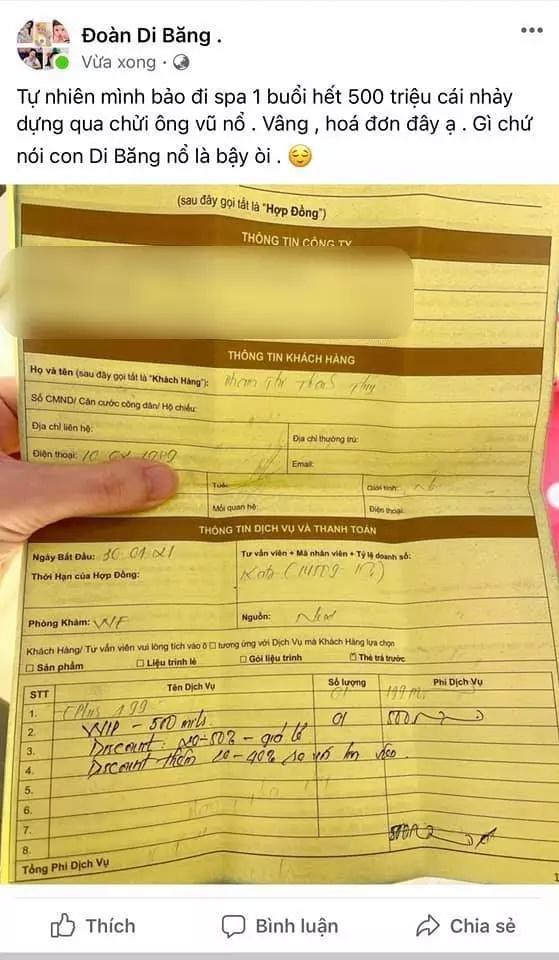 Đoàn Di Băng .
Vừa xong ·
Tự nhiên mình bảo đi spa 1 buổi hết 500 triệu cái nhảy
dựng qua chửi ông vũ nổ . Vâng , hoá đơn đây ạ . Gì chứ
nói con Di Băng nổ là bậy òi . 😌
(sau đây gọi tắt là "Hợp Đồng")
THÔNG TIN CÔNG TY
THÔNG TIN KHÁCH HÀNG
Họ và tên (sau đây gọi tắt là "Khách Hàng"):
Số CMND/ Căn cước công dân/ Hộ chiếu:
Địa chỉ liên hệ:
Địa chỉ thường trú:
Điện thoại:
Email:
Tuổi:
Giới tính:
Mối quan hệ:
Điện thoại:
THÔNG TIN DỊCH VỤ VÀ THANH TOÁN
Ngày Bắt Đầu: 30 01 21
Tư vấn viên + Mã nhân viên + Tỷ lệ doanh số:
Thời Hạn của Hợp Đồng:
Phòng Khám:
Nguồn: New
Khách Hàng/ Tư vấn viên vui lòng tích vào ô ☐ tương ứng với Dịch Vụ mà Khách Hàng lựa chọn
☐ Sản phẩm ☐ Liệu trình lẻ ☐ Gói liệu trình ☐ Thẻ trả trước
STT Tên Dịch Vụ Số lượng Phí Dịch Vụ
1.
2. VVIP - 500 mils 01
3. Discount: 20-50% - giá lẻ
4. Discount thêm
5.
6.
7.
8.
Tổng Phí Dịch Vụ
1
Thích Bình luận Chia sẻ